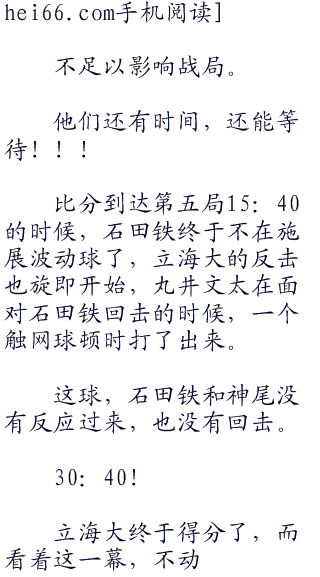 hei66.com手机阅读]
不足以影响战局。
他们还有时间，还能等
待！！！
比分到达第五局15：40
的时候，石田铁终于不在施
展波动球了，立海大的反击
也旋即开始，丸井文太在面
对石田铁回击的时候，一个
触网球顿时打了出来。
这球，石田铁和神尾没
有反应过来，也没有回击。
30：40！
立海大终于得分了，而
看着这一幕，不动